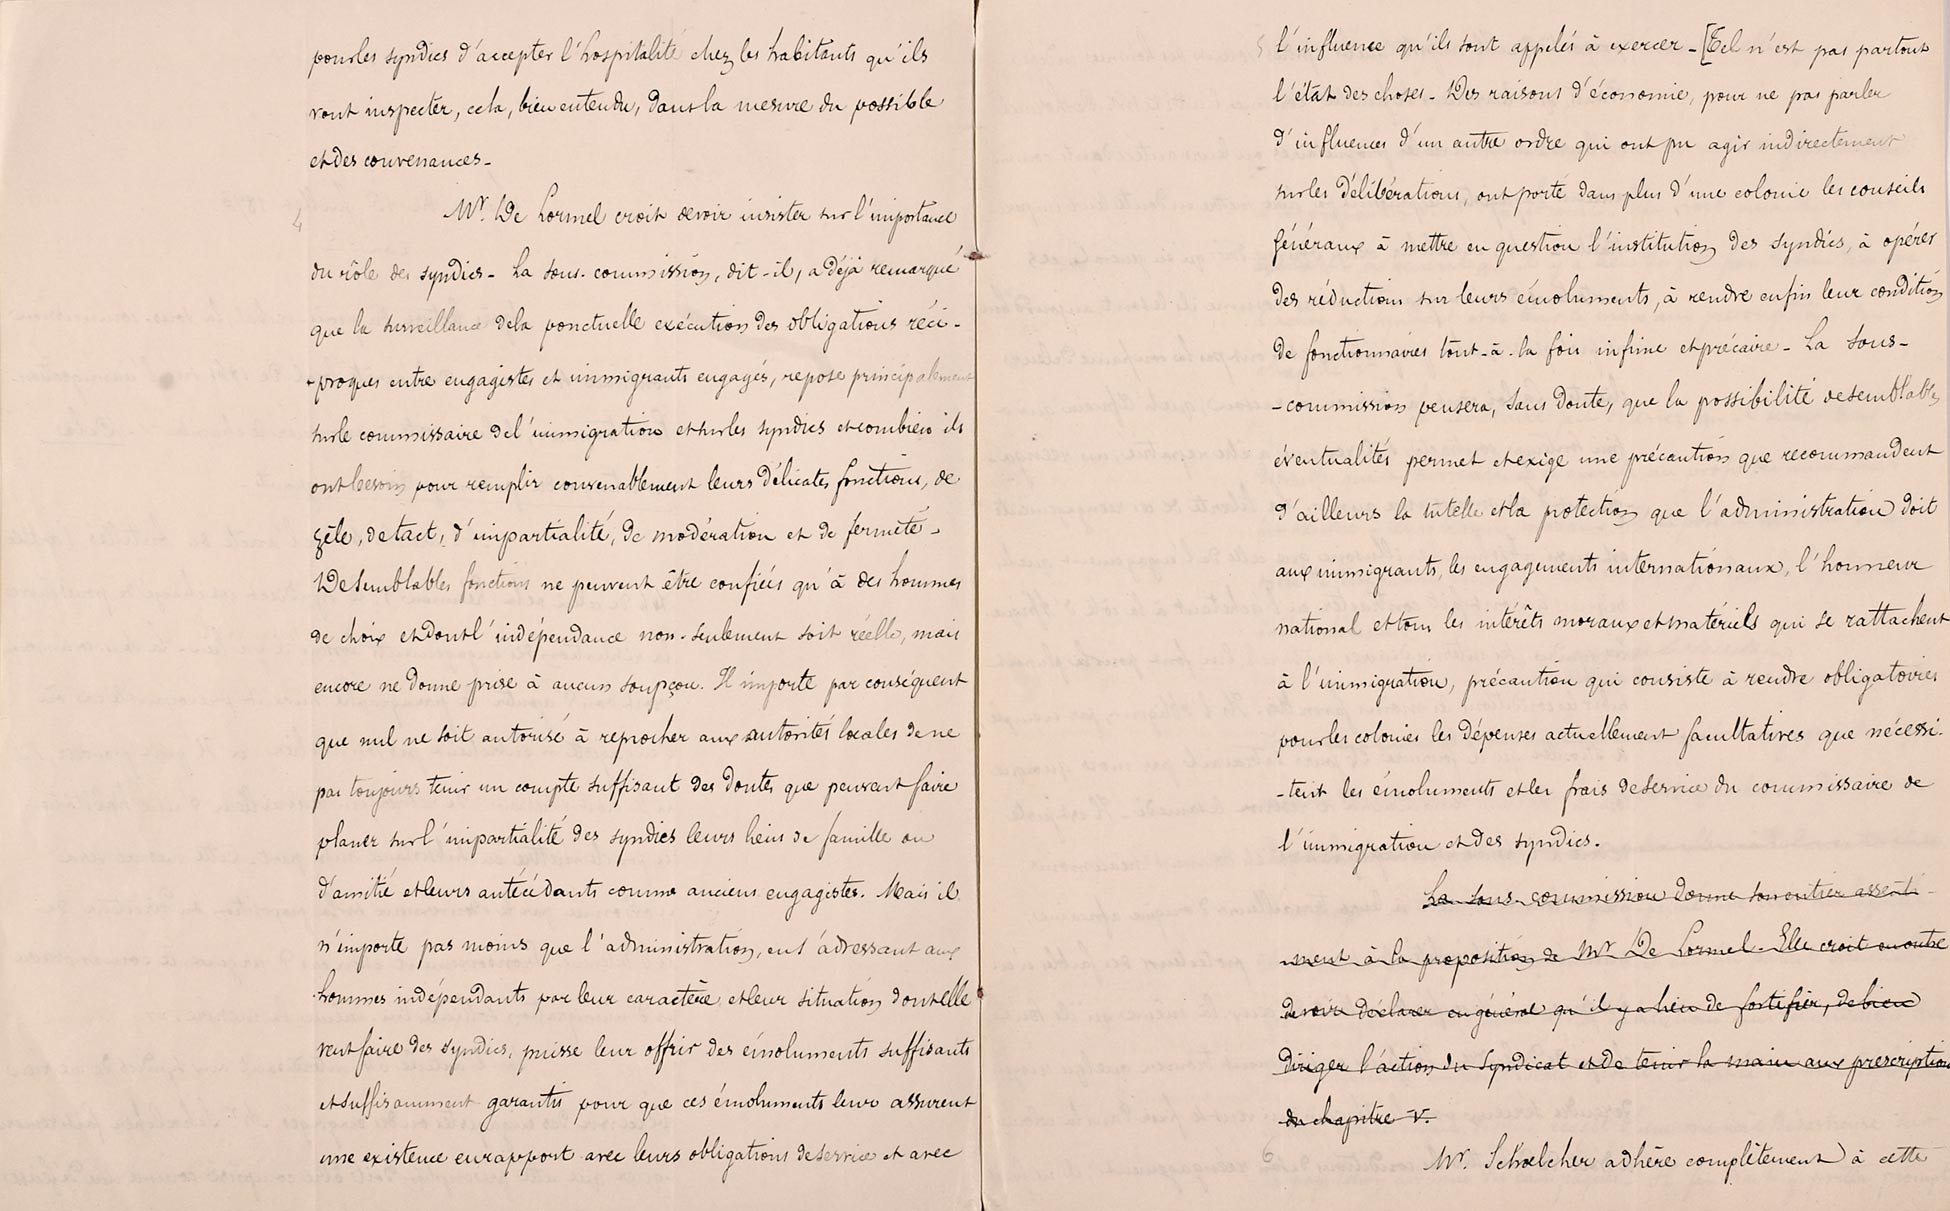 pour les syndics d'accepter l'hospitalité chez les habitants qu'ils
vont inspecter, cela, bien entendu, dans la mesure du possible
et des convenances_
4
Mr. De Lormel croit devoir insister sur l'importance
du rôle des syndics_ La sous-commission, dit-il, a déjà remarqué
que la surveillance de la ponctuelle exécution des obligations réci-
-proques entre engagistes et immigrants engagés, repose principalement
sur le commissaire de l'immigration et sur les syndics et combien ils
ont besoin pour remplir convenablement leurs délicates fonctions, de
zèle, de tact, d'impartialité, de modération et de fermeté_
De semblables fonctions ne peuvent être confiées qu'à des hommes
de choix et dont l'indépendance non-seulement soit réelle, mais
encore ne donne prise à aucun soupçon. Il importe par conséquent
que nul ne soit autorisé à reprocher aux autorités locales de ne
pas toujours tenir un compte suffisant des doutes que peuvent faire
planer sur l'impartialité des syndics leurs liens de famille ou
d'amitié et leurs antécédants comme anciens engagistes. Mais il
n'importe pas moins que l'administration, en s'adressant aux
hommes indépendants par leur caractère et leur situation dont elle
veut faire des syndics, puisse leur offrir des émoluments suffisants
et suffisamment garantis pour que ces émoluments leur assurent
une existence en rapport avec leurs obligations de service et avec
5 l'influence qu'ils sont appelés à exercer_[Tel n'est pas partout
l'état des choses_ Des raisons d'économie, pour ne pas parler
d'influences d'un autre ordre qui ont pu agir indirectement
sur les délibérations, ont porté dans plus d'une colonie les conseils
généraux à mettre en question l'institution des syndics, à opérer
des réductions sur leurs émoluments, à rendre enfin leur condition
de fonctionnaires tout-à-la fois infime et précaire_ La sous-
-commission pensera, sans doute, que la possibilité de semblables
éventualités permet et exige une précaution que recommandent
d'ailleurs la tutelle et la protection que l'administration doit
aux immigrants, les engagements internationaux, l'honneur
national et tous les intérêts moraux et matériels qui se rattachent
à l'immigration, précaution qui consiste à rendre obligatoires
pour les colonies les dépenses actuellement facultatives que nécessi-
-tent les émoluments et les frais de service du commissaire de
l'immigration et des syndics.
La sous-commission donne son entier assenti-
-ment à la proposition de Mr De Lormel_ Elle croit en outre
devoir déclarer en général qu'il y a lieu de fortifier, de bien
diriger l'action du Syndicat et de tenir la main aux prescriptions
du chapitre V.
6
Mr. Schœlcher adhère complètement à cette